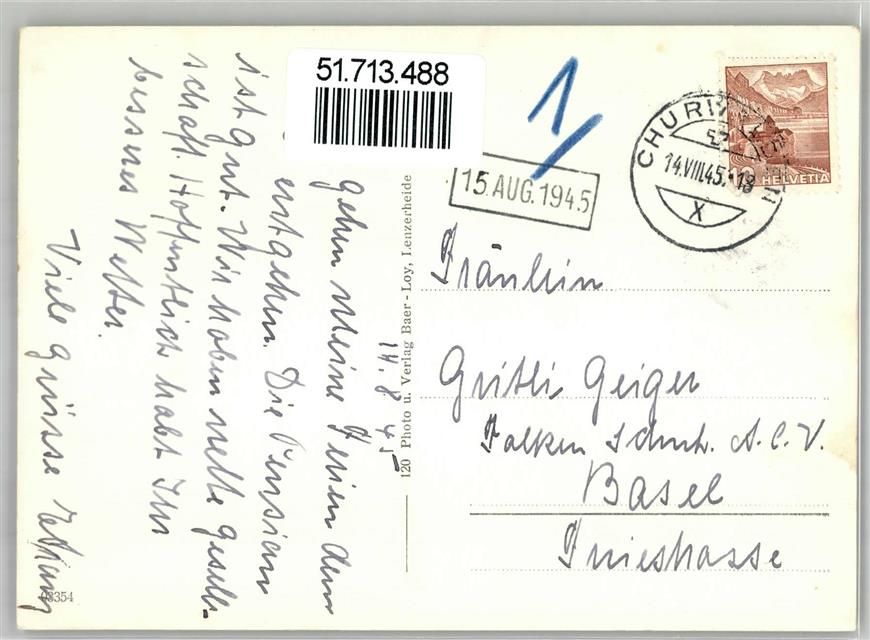 51.713.488
1
15. AUG. 1945
CHURW
14.VIII.45.-18
X
HELVETIA
14. 8. 45
gehen meine Ferien dem
entgehen. Die Pension
ist gut. Wir haben nette Gesell-
schaft. Hoffentlich habt Ihr
besseres Wetter.
Viele Grüsse
120 Photo u. Verlag Baer-Loy, Lenzerheide
Fräulein
Gritli Geiger
Falken A.C.V.
Basel
08354